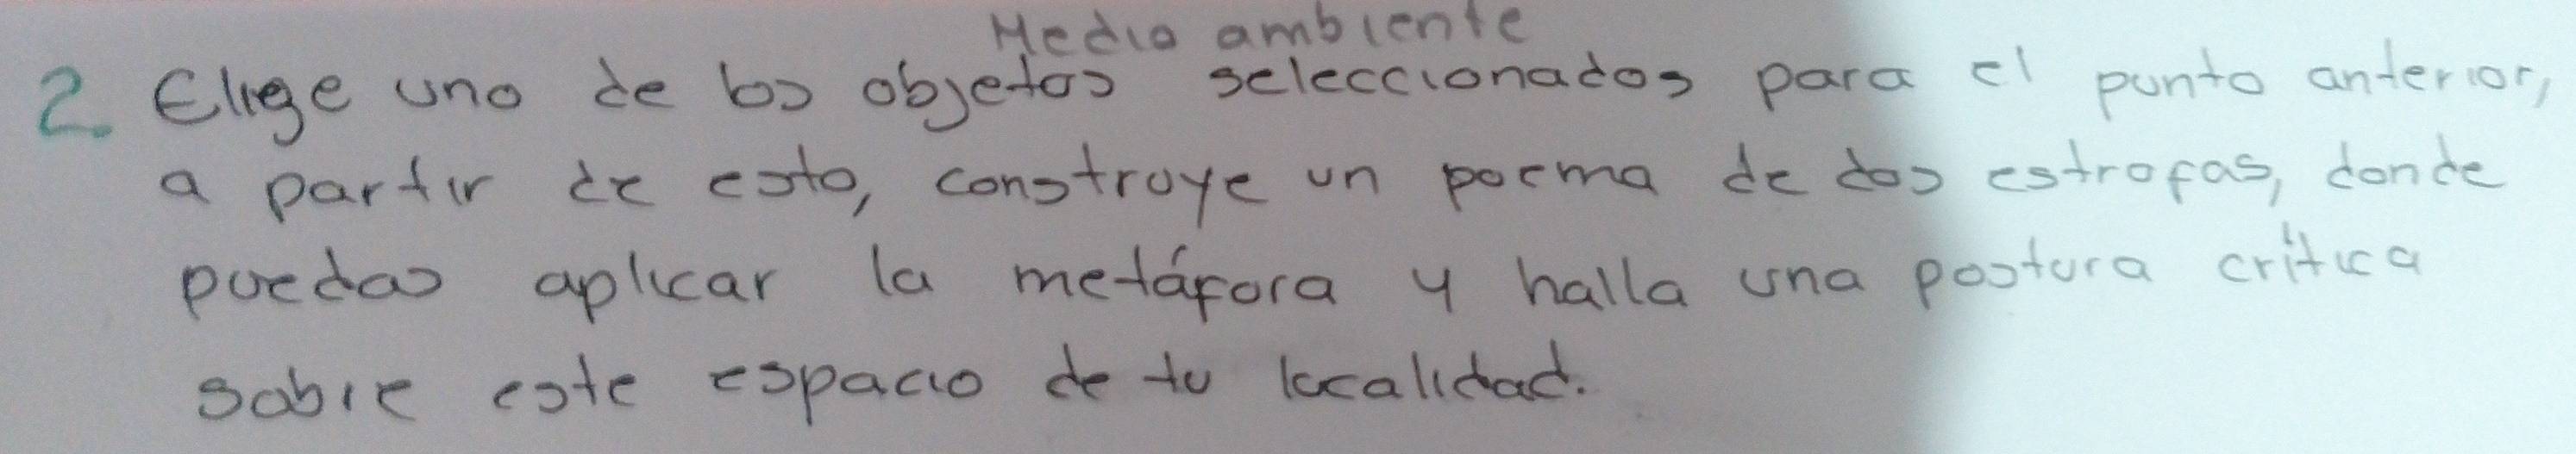 Medio ambiente
2. Elige uno de los objetos seleccionados para el punto anterior,
a partir de esto, construye un poema de dos estrofas, donde
puedas aplicar la metáfora y halla una postura crítica
sobre este espacio de tu localidad.